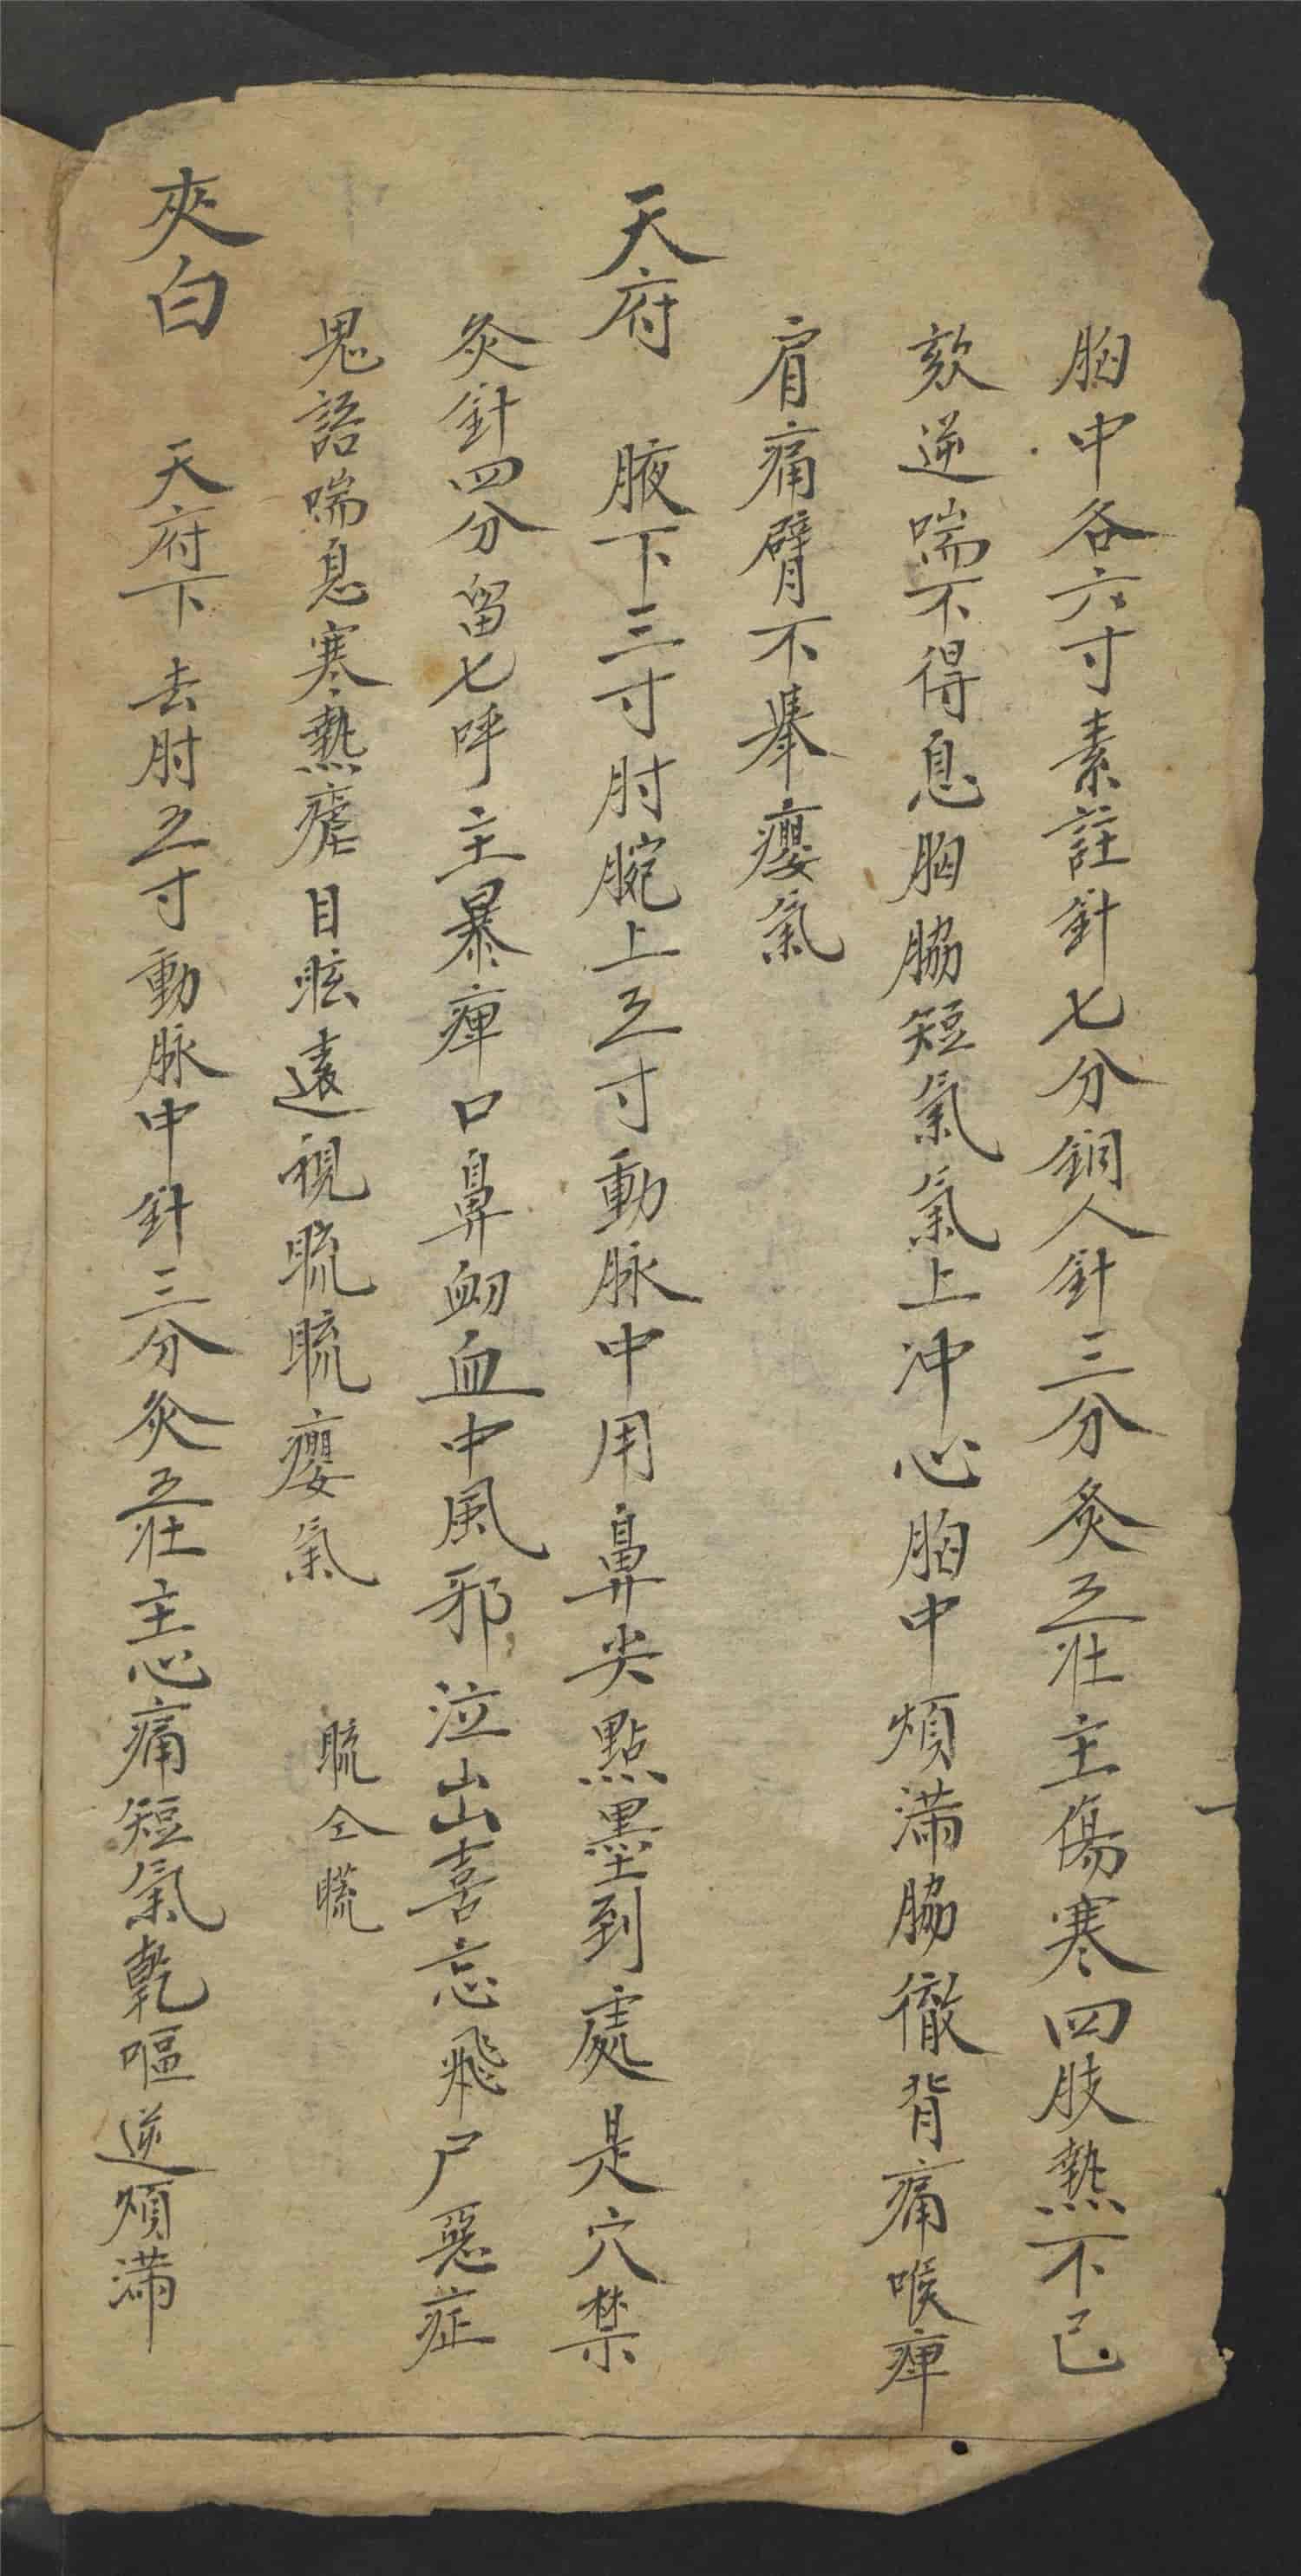 胸中各六寸素註針七分銅人針三分灸五壯主傷寒四肢熱不已
欬逆喘不得息胸脇短氣氣上冲心胸中煩滿脇徹背痛喉痺
肩痛臂不舉癭氣
天府　腋下三寸肘腕上五寸動脉中用鼻尖點墨到處是穴禁
灸針四分留七呼主暴痺口鼻衂血中風邪泣出喜忘飛尸惡症
鬼語喘息寒熱瘧目眩遠視䀮䀮癭氣　䀮仝𥇀
夾白　天府下去肘五寸動脉中針三分灸五壯主心痛短氣乾嘔逆煩滿